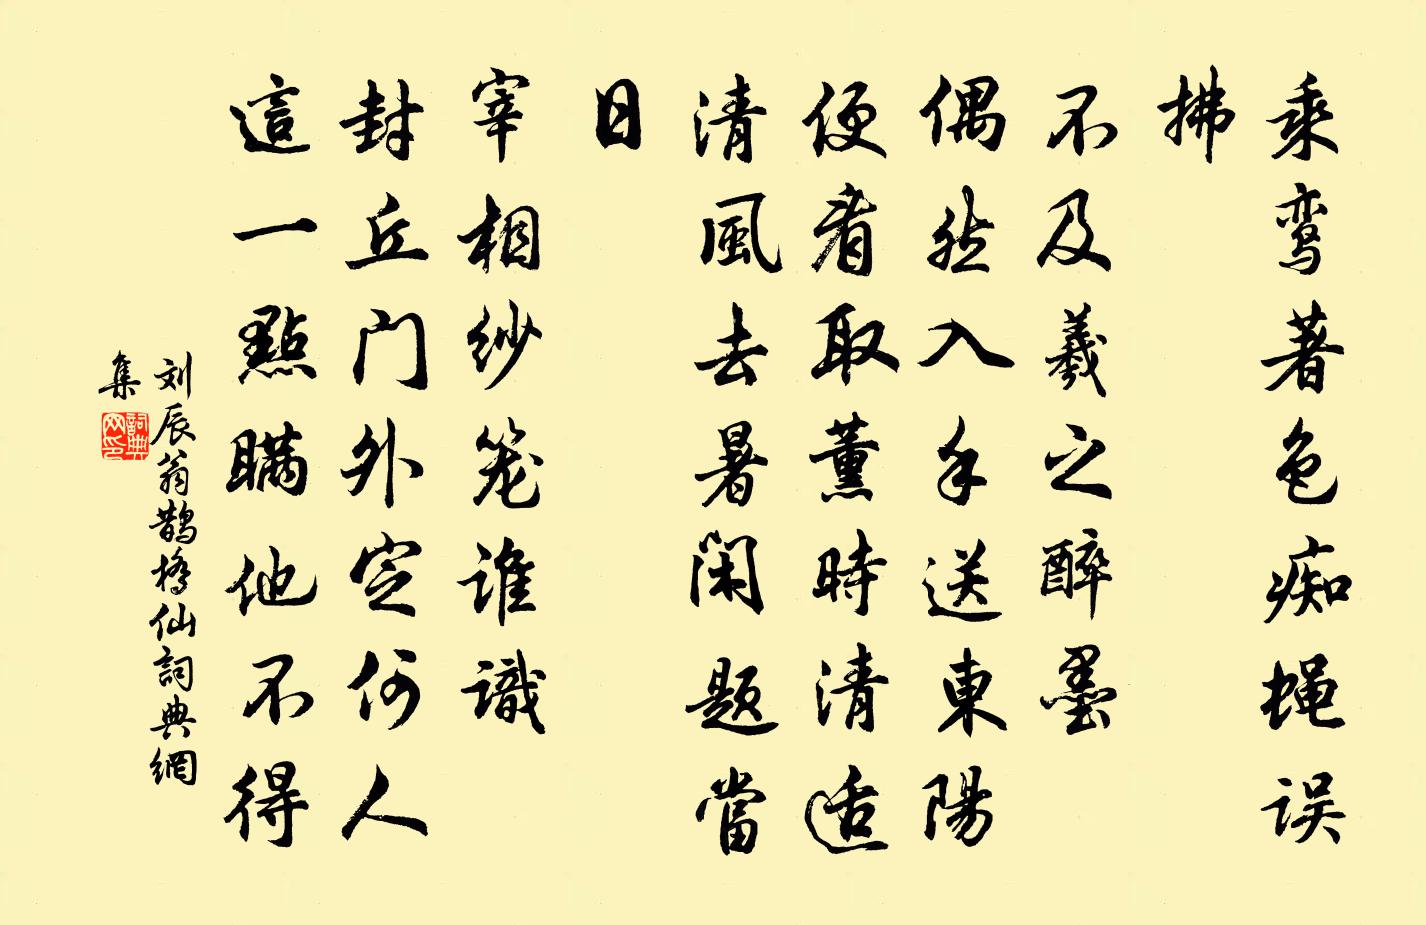 乘鸾著色痴蝇误
拂
不及羲之醉墨
偶然入手送東陽
便看取薰時清适
清風去暑闲题當
日
宰相纱笼谁識
封丘门外定何人
這一點瞒他不得
刘辰翁鹊橋仙詞典網
集
詞典
网印